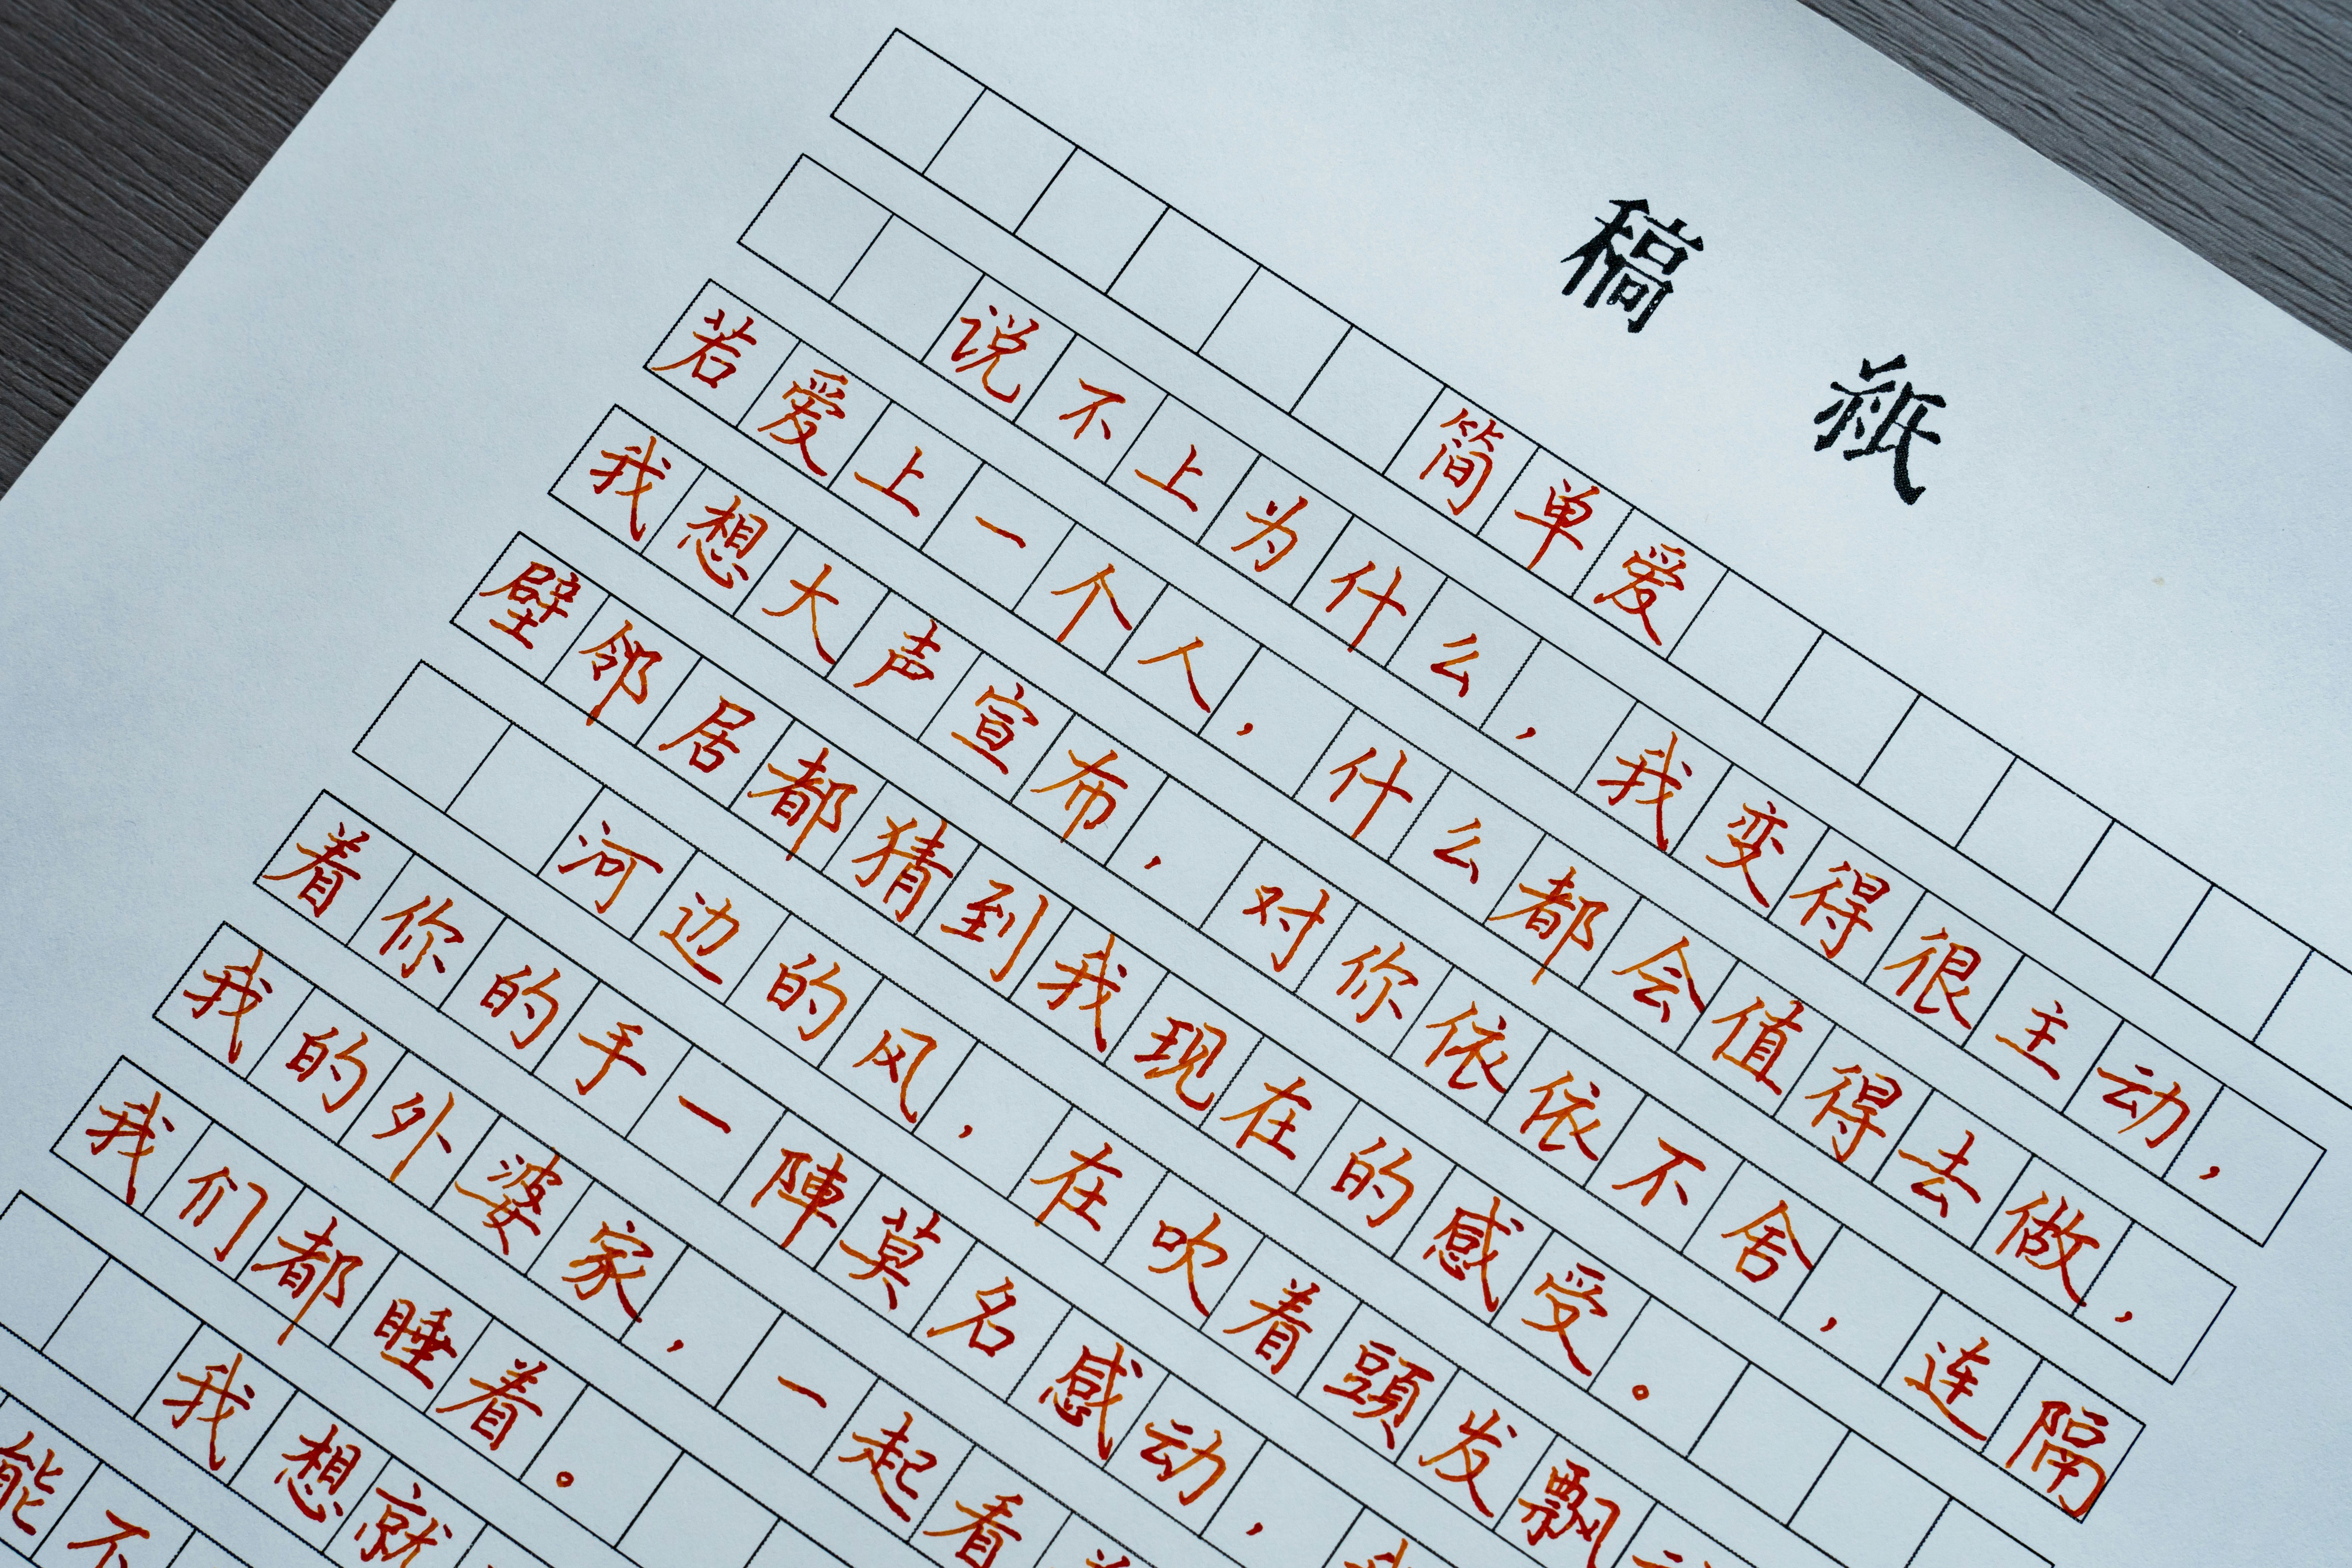 稿紙
简单爱
说不上为什么，我变得很主动，
若爱上一个人，什么都会值得去做，
我想大声宣布，对你依依不舍，连隔
壁邻居都猜到我现在的感受。
河边的风，在吹着頭发飘
着你的手一陣莫名感动，
我的外婆家，一起看
我们都睡着。
我想就
能不